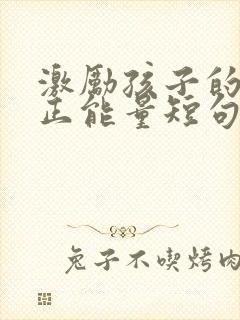 激励孩子的
正能量短句
兔子不喫烤肉